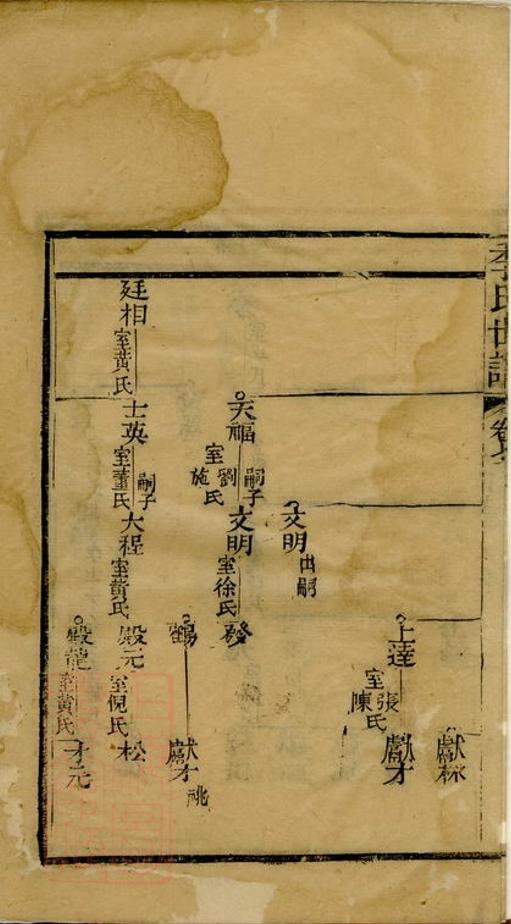 李氏世譜
卷
獻
上達
室張陳氏
獻才
文明
出嗣
天福
室劉施氏
嗣子
文明
室徐氏
發
鶴
獻才
祧
廷相
室黄氏
士英
室董氏
嗣子
大程
室黄氏
殿元
室倪氏
松
殿龍
室黄氏
才元